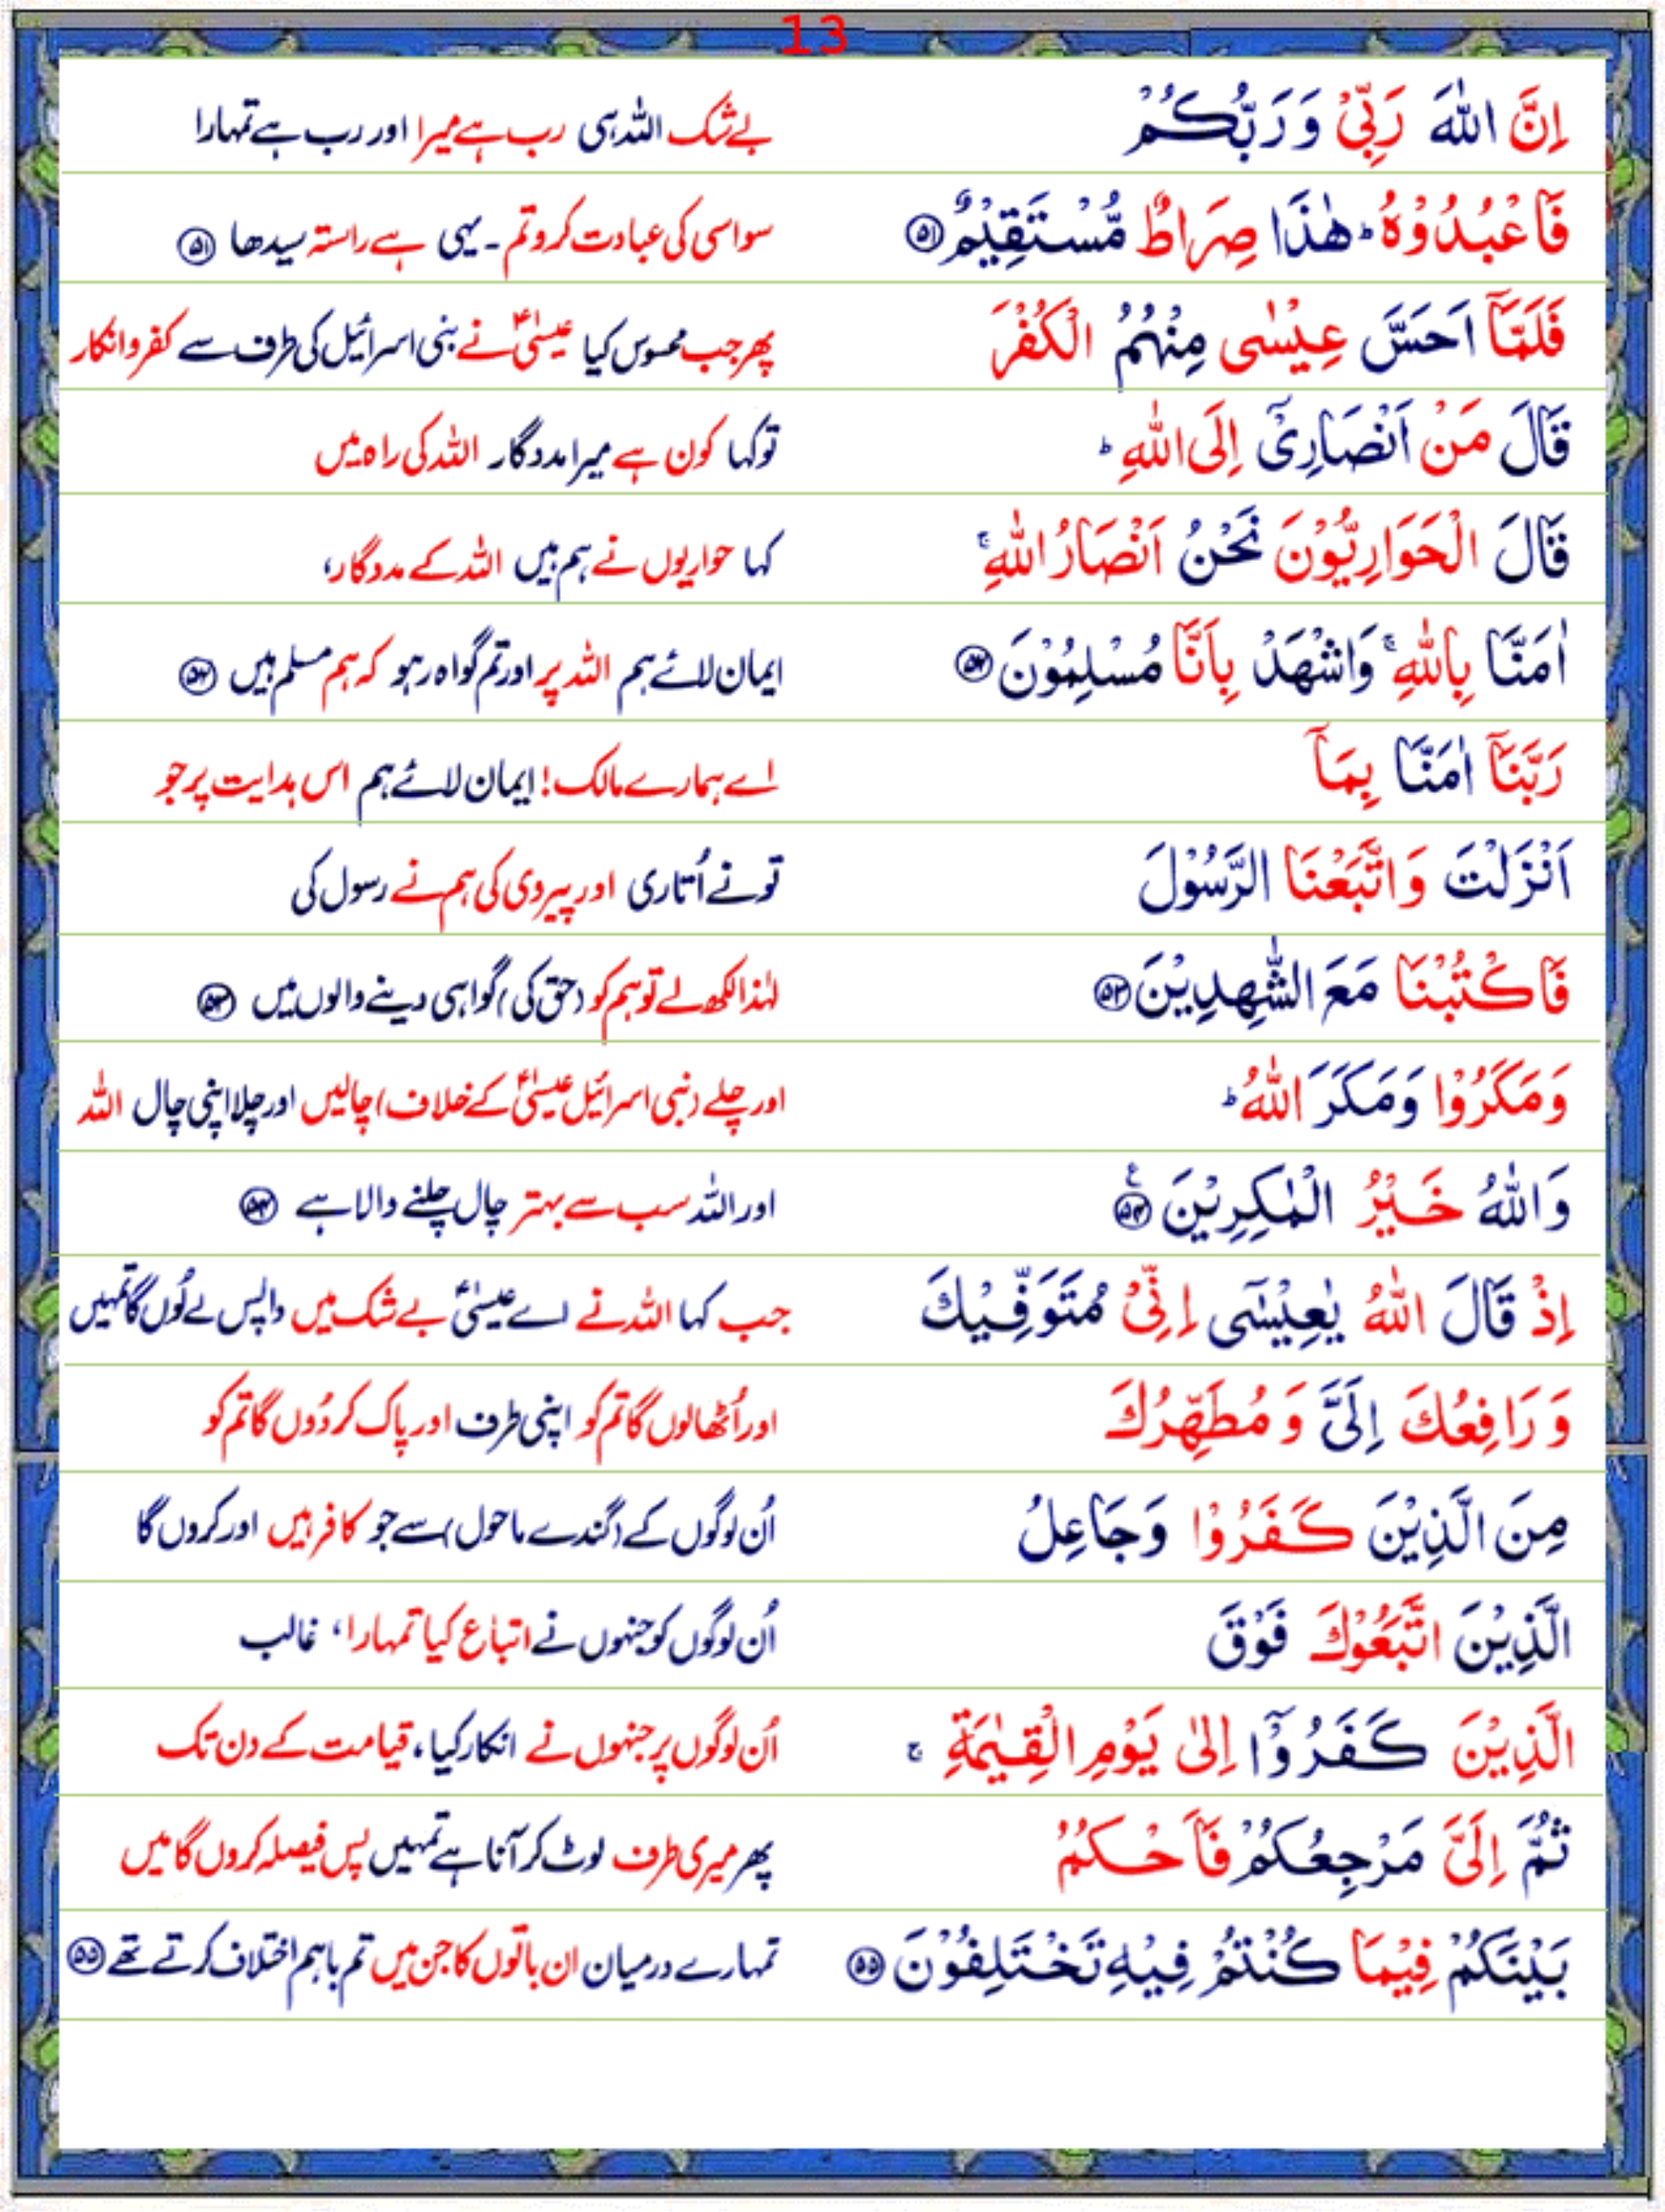 13
اِنَّ اللّٰهَ رَبِّیْ وَ رَبُّكُمْ بے شک اللہ ہی رب ہے میرا اور رب ہے تمہارا
فَاعْبُدُوْهُ ؕ هٰذَا صِرَاطٌ مُّسْتَقِیْمٌ ۝۵۱ سو اسی کی عبادت کرو تم ۔ یہی ہے راستہ سیدھا ۝۵۱
فَلَمَّاۤ اَحَسَّ عِیْسٰی مِنْهُمُ الْكُفْرَ پھر جب محسوس کیا عیسیٰؑ نے بنی اسرائیل کی طرف سے کفر و انکار
قَالَ مَنْ اَنْصَارِیْۤ اِلَی اللّٰهِ ؕ تو کہا کون ہے میرا مددگار اللہ کی راہ میں
قَالَ الْحَوَارِیُّوْنَ نَحْنُ اَنْصَارُ اللّٰهِ ۚ کہا حواریوں نے ہم ہیں اللہ کے مددگار،
اٰمَنَّا بِاللّٰهِ ۚ وَاشْهَدْ بِاَنَّا مُسْلِمُوْنَ ۝۵۲ ایمان لائے ہم اللہ پر اور تم گواہ رہو کہ ہم مسلم ہیں ۝۵۲
رَبَّنَاۤ اٰمَنَّا بِمَاۤ اے ہمارے مالک! ایمان لائے ہم اس ہدایت پر جو
اَنْزَلْتَ وَ اتَّبَعْنَا الرَّسُوْلَ تو نے اُتاری اور پیروی کی ہم نے رسول کی
فَاكْتُبْنَا مَعَ الشّٰهِدِیْنَ ۝۵۳ لہٰذا لکھ لے تو ہم کو (حق کی) گواہی دینے والوں میں ۝۵۳
وَ مَكَرُوْا وَ مَكَرَ اللّٰهُ ؕ اور چلے (بنی اسرائیل عیسیٰؑ کے خلاف) چالیں اور چلا اپنی چال اللہ
وَ اللّٰهُ خَیْرُ الْمٰكِرِیْنَ ۝۵۴ۧ اور اللہ سب سے بہتر چال چلنے والا ہے ۝۵۴
اِذْ قَالَ اللّٰهُ یٰعِیْسٰۤی اِنِّیْ مُتَوَفِّیْكَ جب کہا اللہ نے اے عیسیٰؑ بے شک میں واپس لے لُوں گا تمہیں
وَ رَافِعُكَ اِلَیَّ وَ مُطَهِّرُكَ اور اُٹھا لوں گا تم کو اپنی طرف اور پاک کر دُوں گا تم کو
مِنَ الَّذِیْنَ كَفَرُوْا وَ جَاعِلُ اُن لوگوں کے (گندے ماحول) سے جو کافر ہیں اور کروں گا
الَّذِیْنَ اتَّبَعُوْكَ فَوْقَ اُن لوگوں کو جنہوں نے اتباع کیا تمہارا، غالب
الَّذِیْنَ كَفَرُوْۤا اِلٰی یَوْمِ الْقِیٰمَةِ ۚ اُن لوگوں پر جنہوں نے انکار کیا، قیامت کے دن تک
ثُمَّ اِلَیَّ مَرْجِعُكُمْ فَاَحْكُمُ پھر میری طرف لوٹ کر آنا ہے تمہیں پس فیصلہ کروں گا میں
بَیْنَكُمْ فِیْمَا كُنْتُمْ فِیْهِ تَخْتَلِفُوْنَ ۝۵۵ تمہارے درمیان ان باتوں کا جن میں تم باہم اختلاف کرتے تھے ۝۵۵